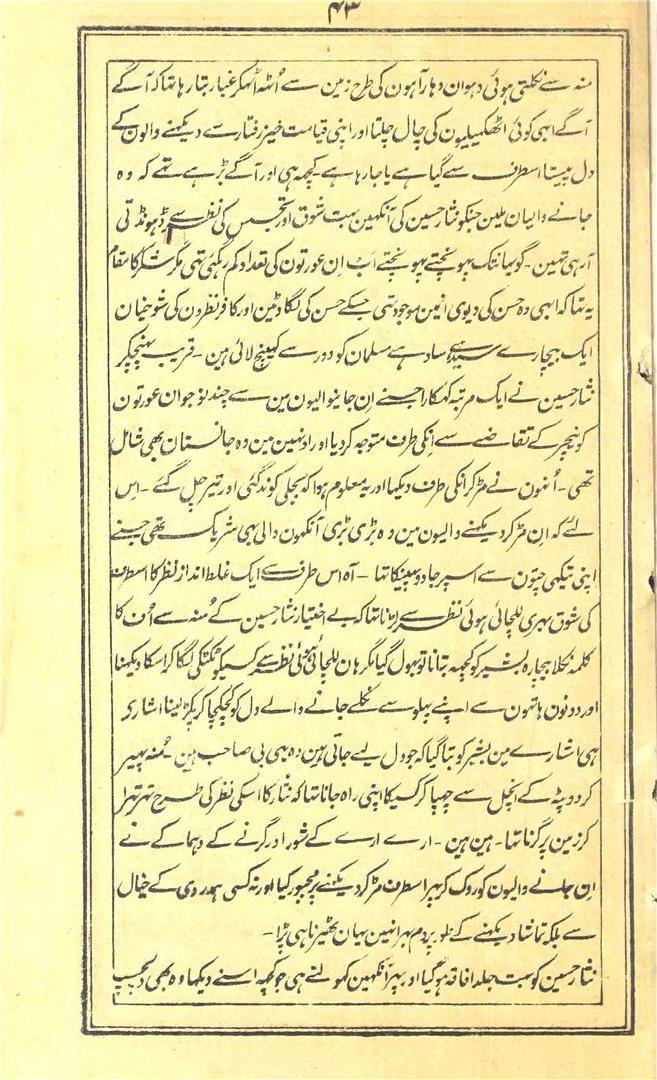 ۴۳
منہ سے نکلتی ہوئی دہوان دہار آہون کی طرح زمین سے اُٹھ اُٹھکر غبار بتا رہا تہا کہ آگے
آگے ابہی کوئی اٹھکہیلیون کی چال چلتا اور اپنی قیامت خیز رفتار سے دیکہنے والون کے
دل پیستا اسطرف سے گیا ہے یا جا رہا ہے ۔ کچہہ ہی اور آگے بڑہے تہے کہ وہ
جانے والیان ملین جنکو نثار حسین کی آنکہین بہت شوق اور تجسس کی نظر سے ڈہونڈتی
آ رہی تہین ۔ گو یہانتک پہونچتے پہونچتے اب اِن عورتون کی تعداد کم رہگئی تہی مگر شکر کا مقام
یہ تہا کہ ابہی وہ حسن کی دیوی انمین موجود تہی جسکے حسن کی لگاوٹین اور کافر نظرون کی شوخیان
ایک بیچارے سیدہے سادہے مسلمان کو دور سے کہینچ لائی ہین ۔ قریب پہنچکر
نثار حسین نے ایک مرتبہ کہکارا جسنے اِن جانیوالیون مین سے چند نوجوان عورتون
کو نیچر کے تقاضے سے انکی طرف متوجہ کر دیا اور اونہین مین وہ جانستان بھی شامل
تھی ۔ اُنہون نے مڑکر انکی طرف دیکہا اور یہ معلوم ہوا کہ بجلی کوند گئی اور تیر چل گئے ۔ اِس
لئے کہ اِن مڑ کر دیکہنے والیون مین وہ بڑی بڑی آنکہون والی بہی شریک تھی جسنے
اپنی تیکہی چتون سے اسپر جادو پہینکا تہا ۔ آہ اس طرف سے ایک غلط انداز نظر کا اسطرف
کی شوق بہری للچائی ہوئی نظر سے لڑنا تہا کہ بے اختیار نثار حسین کے مُنہ سے اُف کا
کلمہ نکلا بیچارہ بشیر کو کچہہ بتانا تو بہول گیا مگر ہان للچائی ہوئی نظر سے کسیکو ٹکٹکی لگا کر اسکا دیکہنا
اور دونون ہاتہون سے اپنے پہلو سے نکلے جانے والے دل کو کچکچا کر پکڑ لینا اشاری
ہی اشارے مین بشیر کو بتا گیا کہ جو دل لیے جاتی ہین وہ یہی بی صاحب ہین ۔ مُنہ پہیر
کر دوپٹہ کے انچل سے چہپا کر کسیکا اپنی راہ جانا تہا کہ نثار کا اسکی نظر کی طرح تہر تہرا
کر زمین پر گرنا تہا ۔ ہین ہین ۔ ارے ارے کے شور اور گرنے کے دہماکے نے
اِن جانے والیون کو روک کر پہر اسطرف مڑ کر دیکہنے پر مجبور کیا اور نہ کسی ہمدردی کے خیال
سے بلکہ تماشا دیکہنے کے طور پر دم بہر انہین یہان ٹھیرنا ہی پڑا ۔
نثار حسین کو بہت جلد افاقہ ہو گیا اور پہر آنکہین کہولتے ہی جو کچہہ اسنے دیکہا وہ بھی دلچسپ